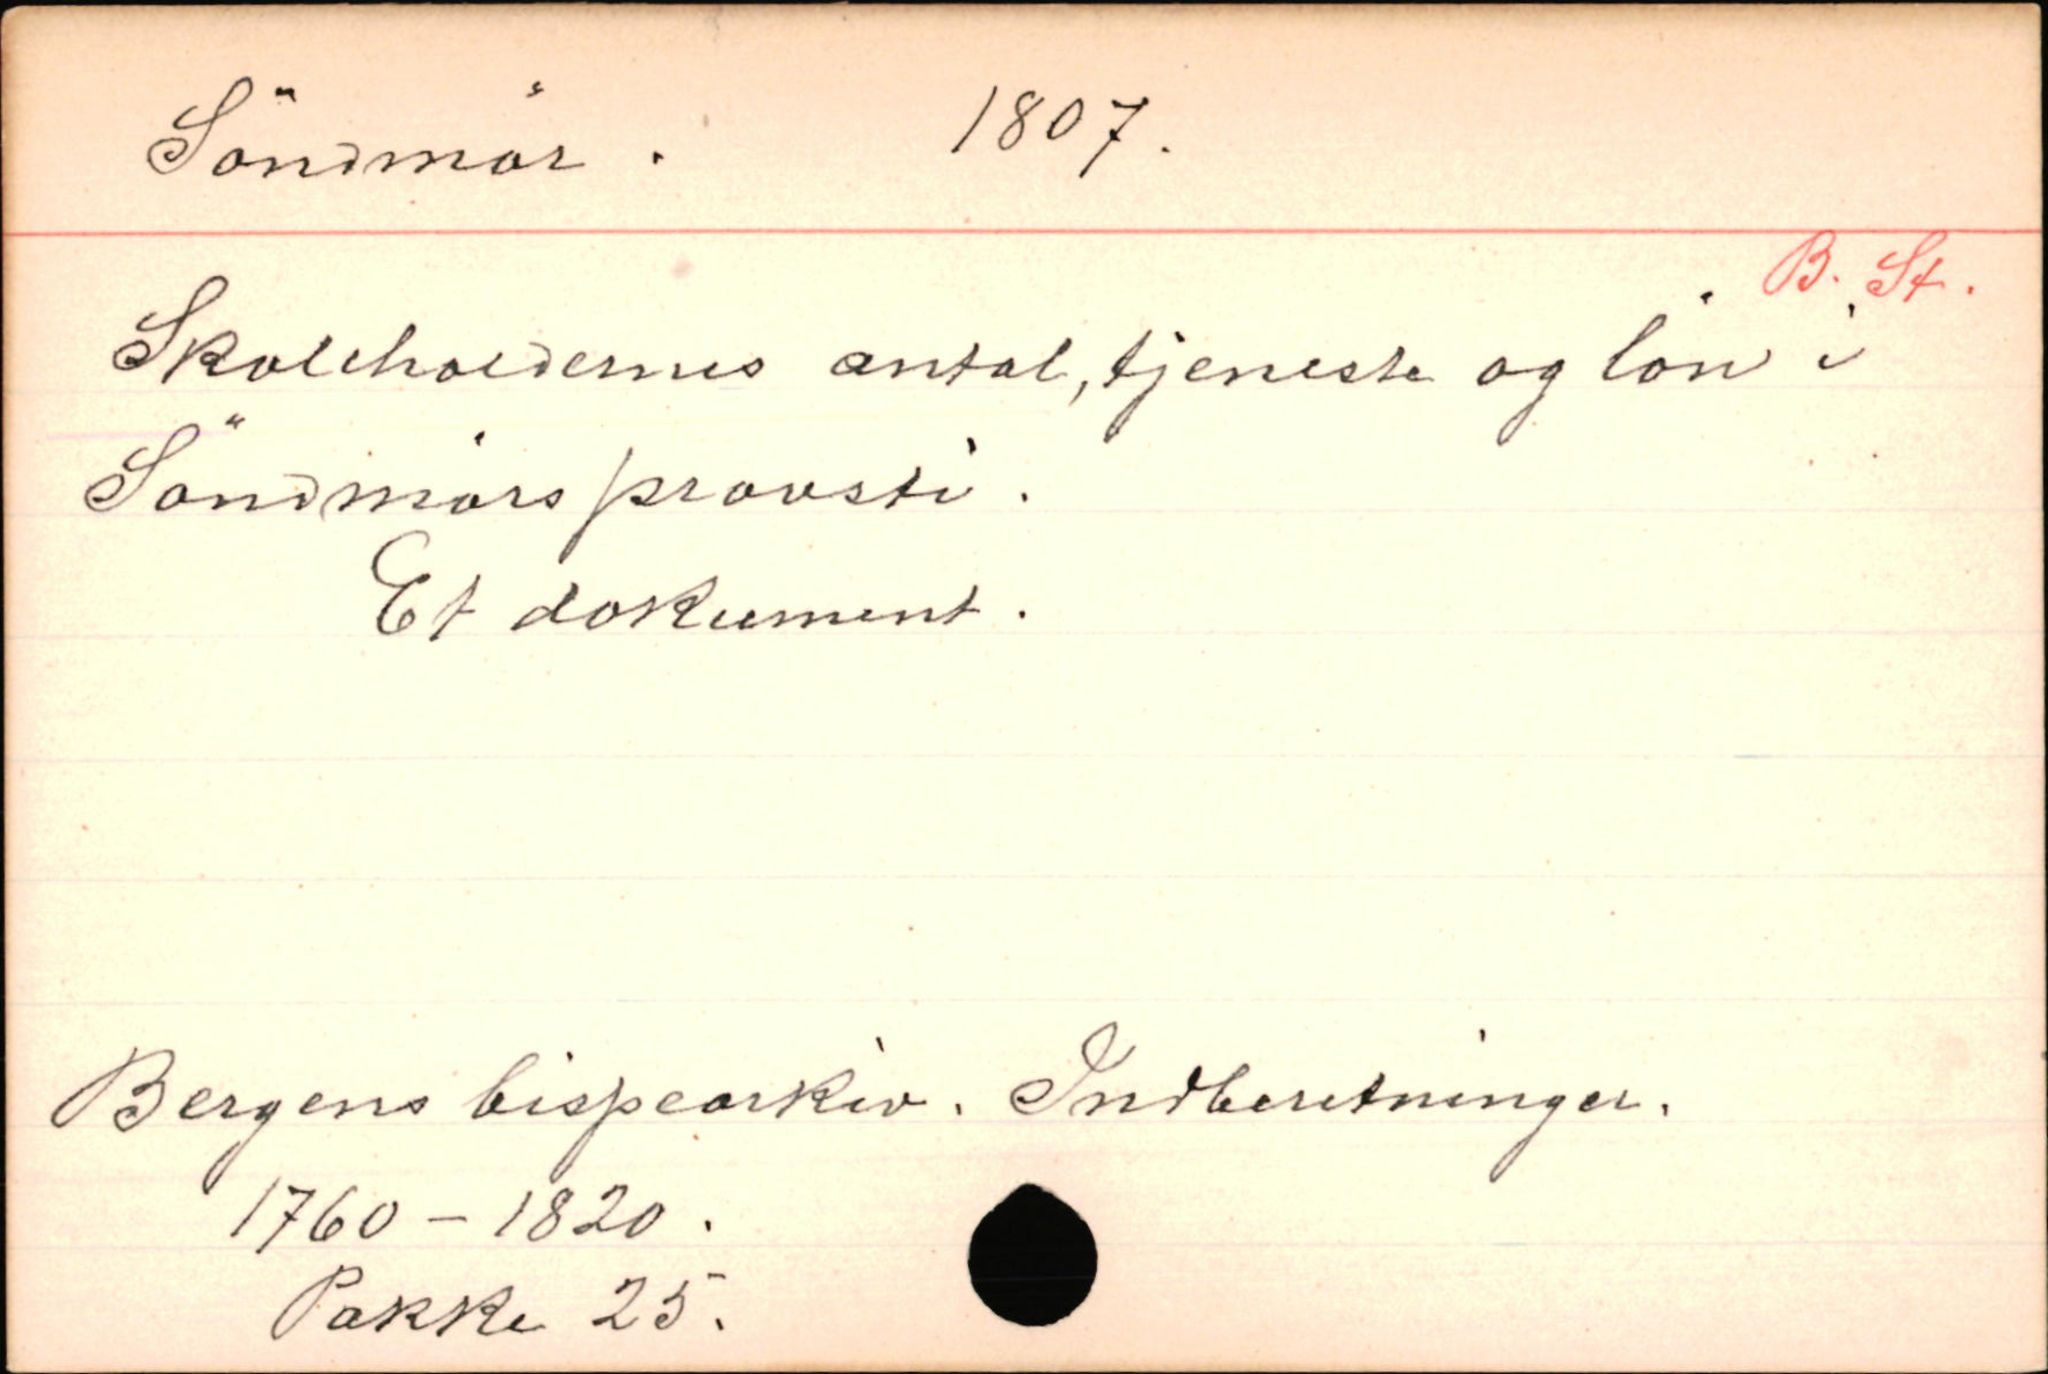 Söndmör. 1807.
B. St.
Skoleholdernes antal, tjeneste og lön i
Söndmörs provsti.
Et dokument.
Bergens bispearkiv. Indberetninger.
1760-1820.
Pakke 25.